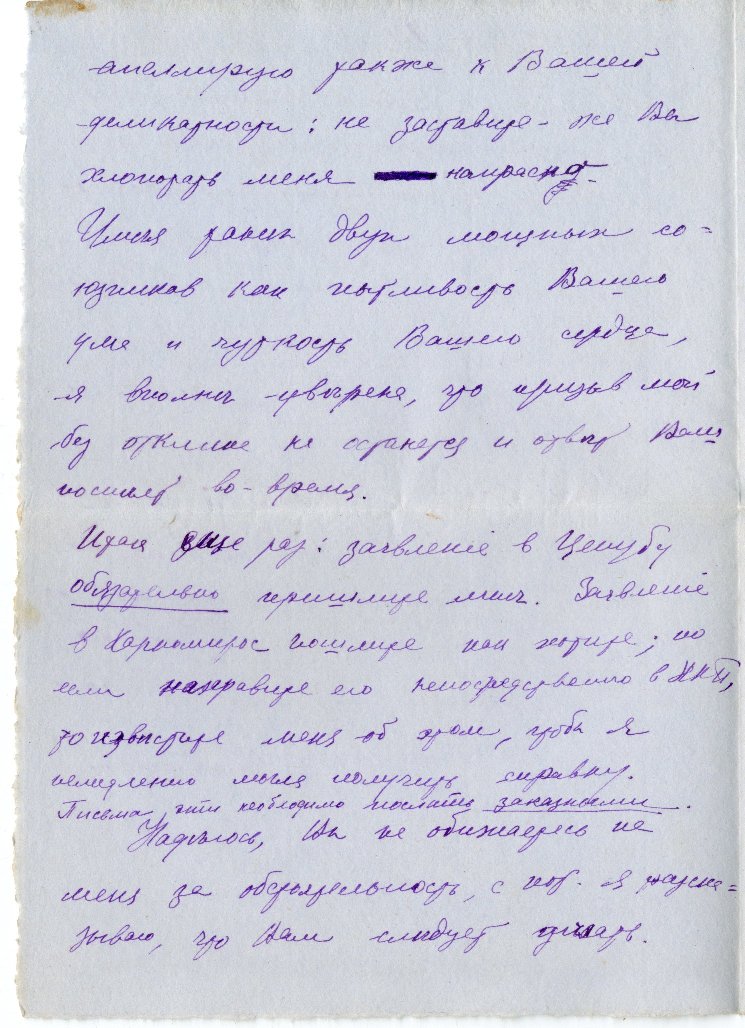 апеллирую также к Вашей
деликатности: не заставите-же Вы
хлопотать меня напрасно.
Имѣя таких двух мощных со=
юзников как пытливость Вашего
ума и чуткость Вашего сердца,
я вполнѣ увѣрена, что призыв мой
без отклика не останется и отвѣт Ваш
поспѣет во-время.
Итак еще раз: заявленіе в Цекубу
обязательно пришлите мнѣ. Заявленіе
в Наркомпрос пошлите как хотите; но
если направите его непосредственно в НКП,
то извѣстите меня об этом, чтобы я
немедленно могла получить справку.
Письма эти необходимо послать заказными.
Надѣюсь, Вы не обижаетесь на
меня за обстоятельность, с кот. я разска=
зываю, что Вам слѣдует дѣлать.